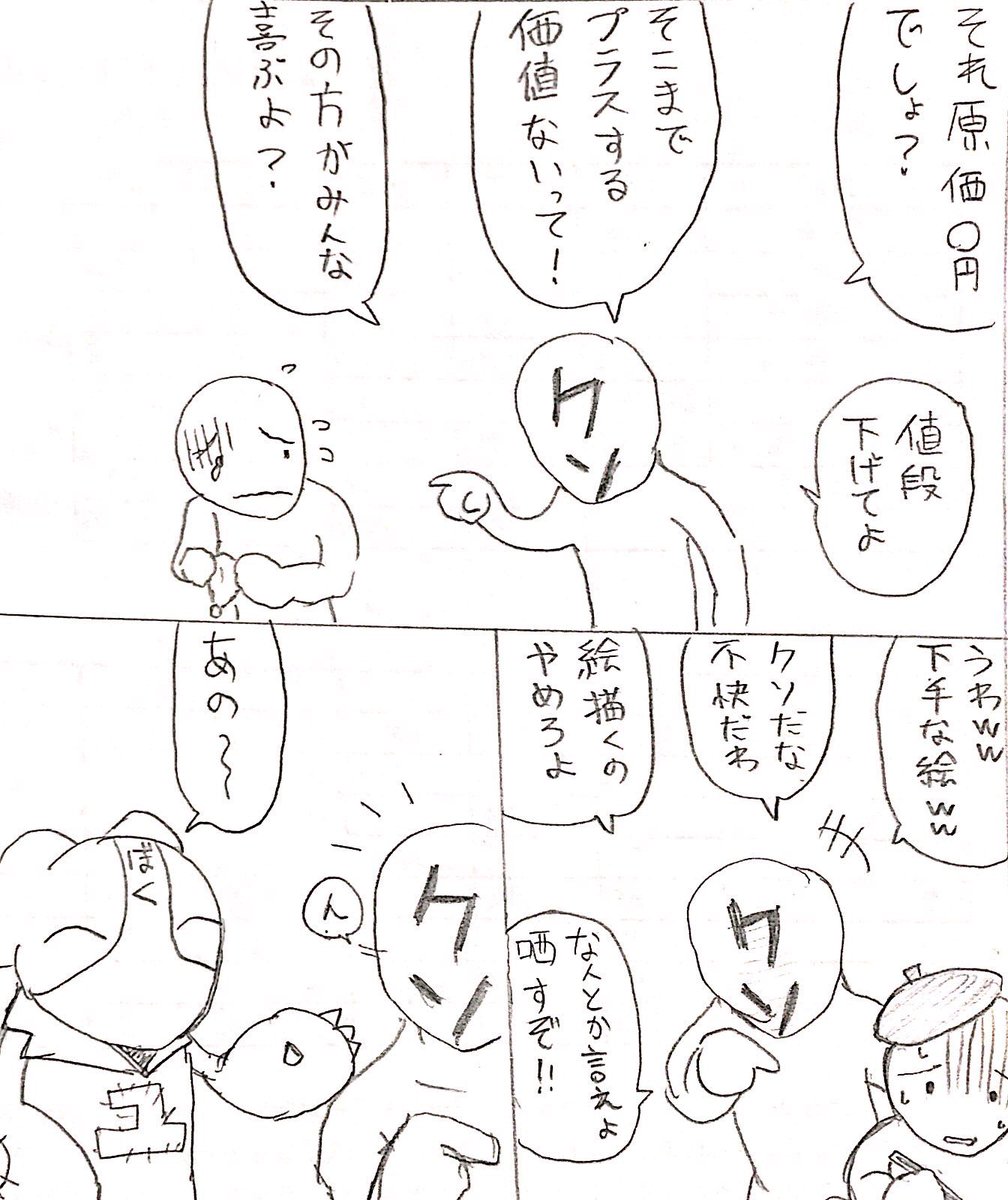 それ原価〇円
でしょ?
値段
下げてよ
そこまで
プラスする
価値ないって!
クソ
その方がみんな
喜ぶよ?
うわww
下手な絵ww
クソだな
不快だわ
絵描くの
やめろよ
クソ
なんとか言えよ
晒すぞ!!
あの〜〜
ん
クソ
ぼく
ユ